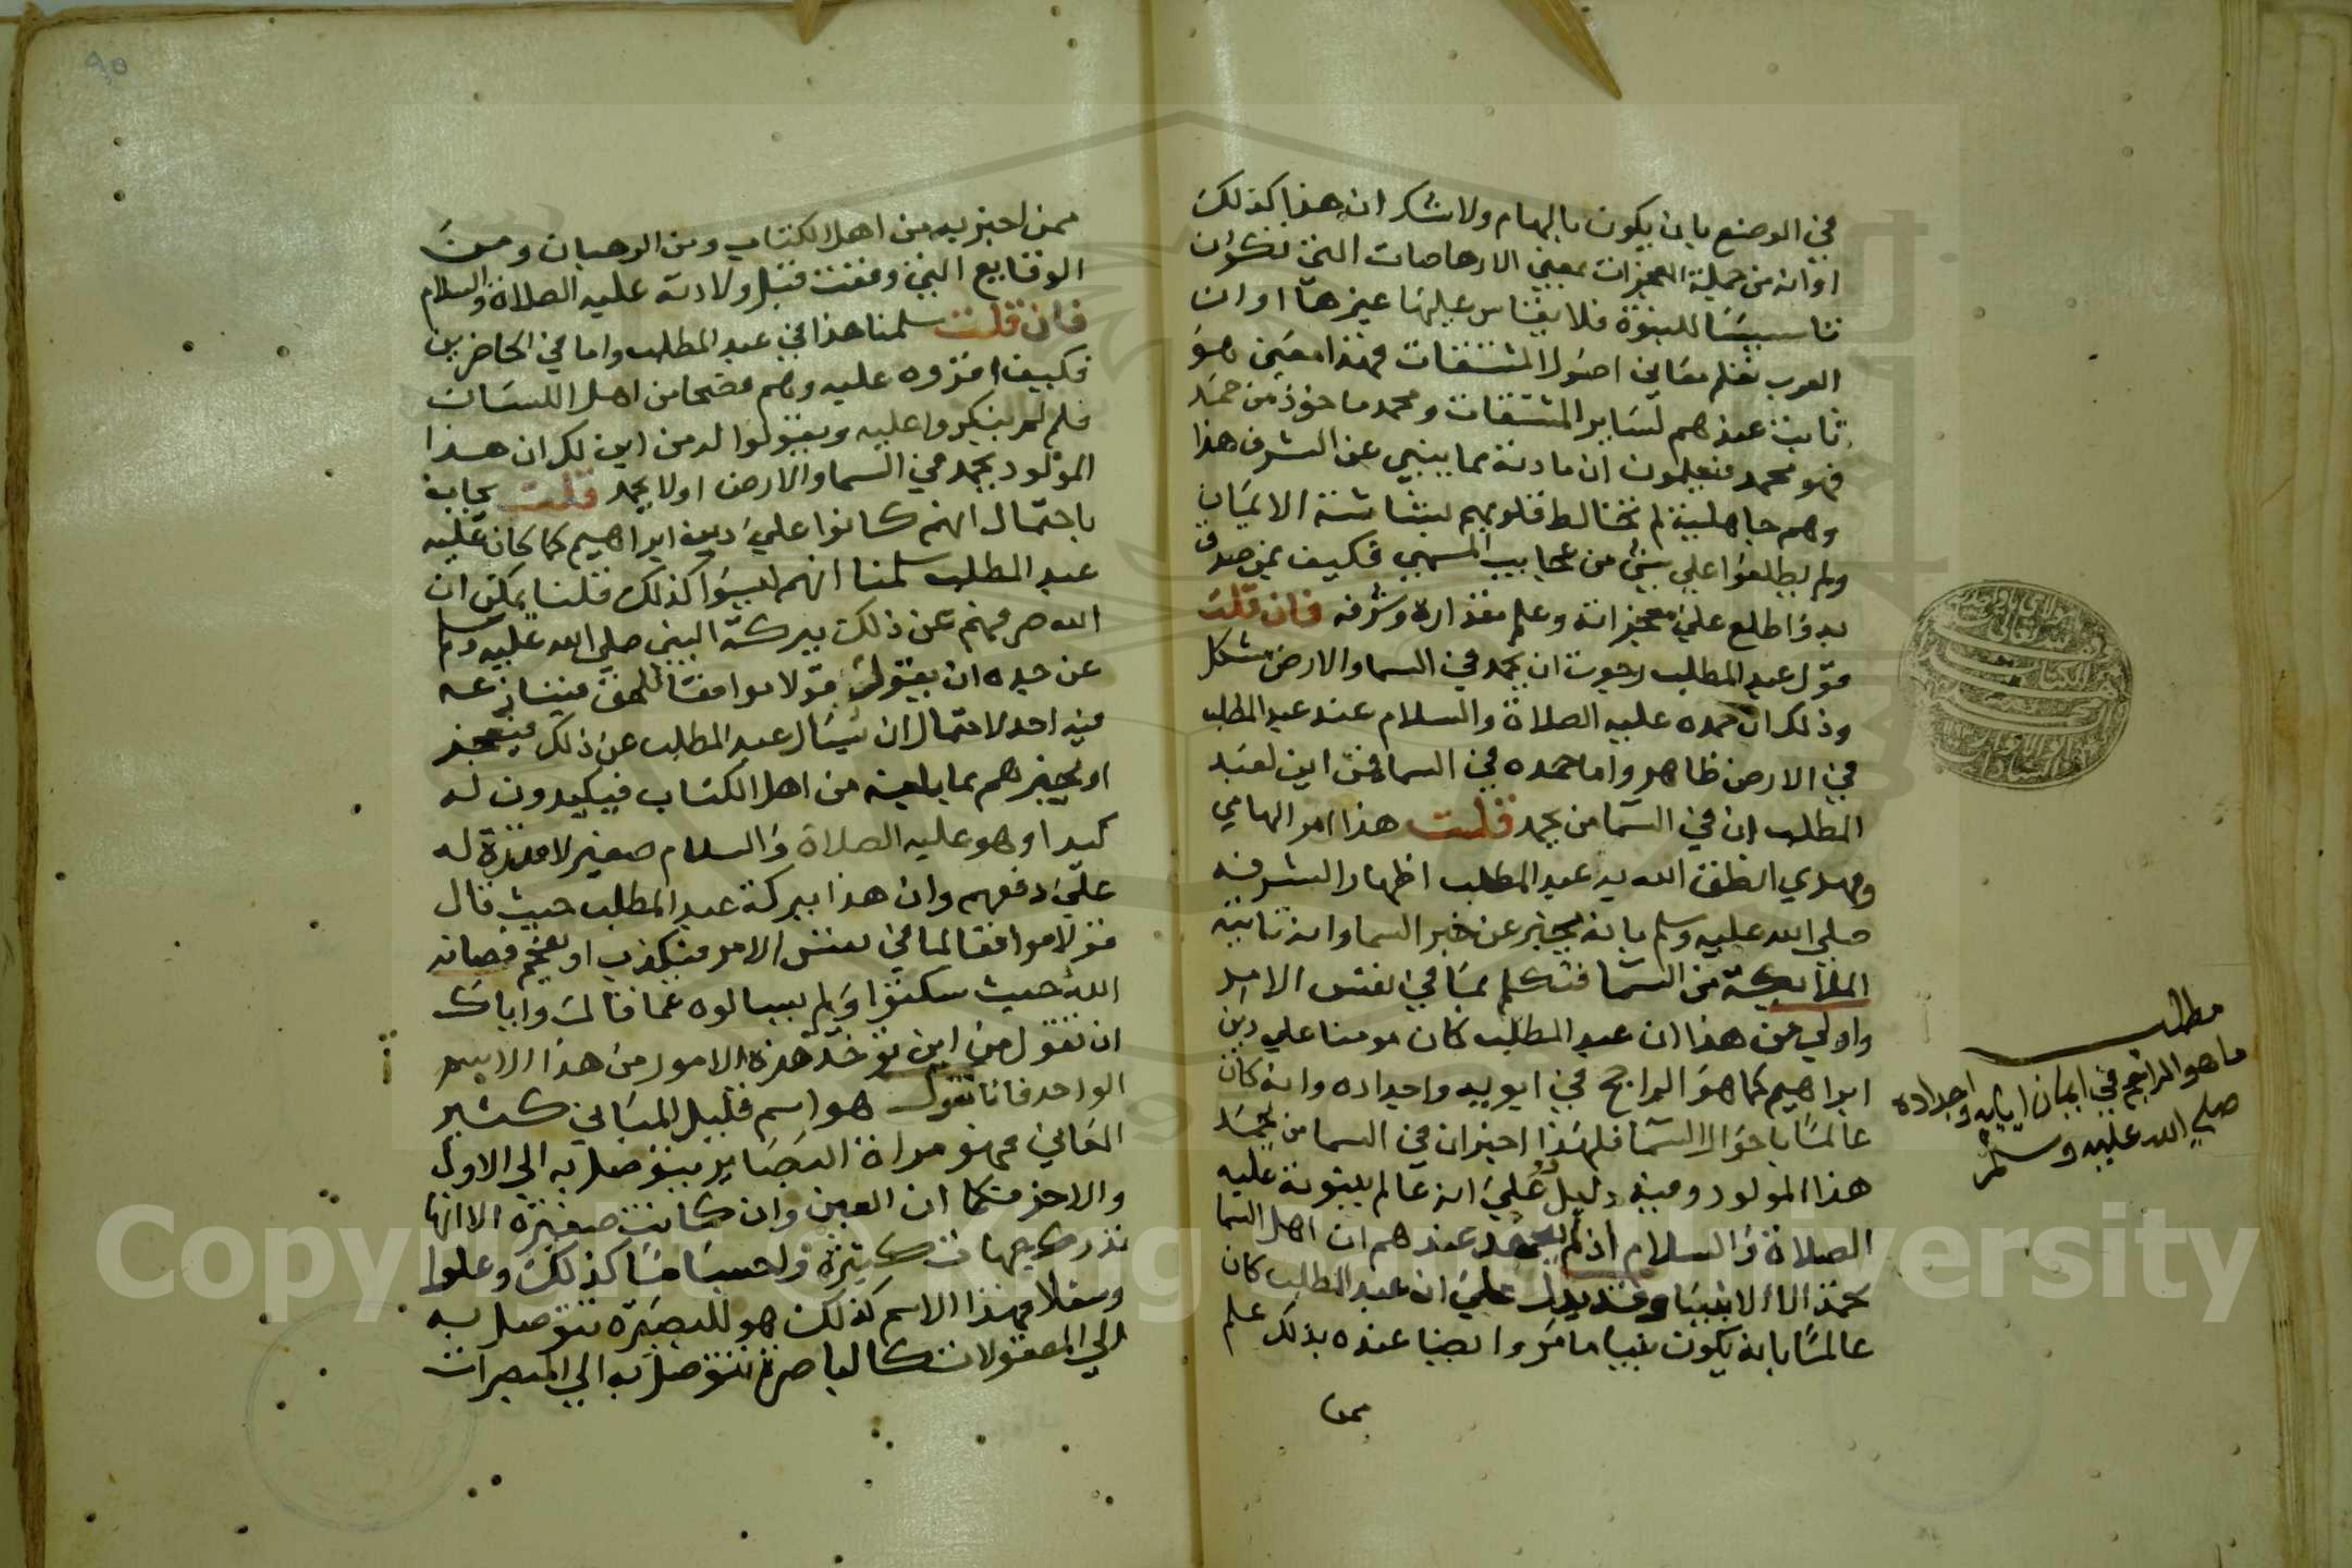 في الوضع بان يكون بالهام ولا شك ان هذا كذلك
او انه من جملة المعجزات بمعني الارهاصات التي تذكر ان
تاسيسا للنبوة فلا يقاس عليها غيرها او ان
العرب تعلم معاني اصول المشتقات فهذا معني هو
ثابت عندهم لساير المشتقات ومحمد ماخوذ من حمد
فهو محمد فيعلمون ان مادته مما ينبي عن الشرف هذا
وهم جاهلية لم تخالط قلوبهم بشاشة الايمان
ولم يطلعوا علي شي من عجايب المسمي فكيف بمن صدق
به واطلع علي معجزاته وعلم مقداره وشرفه فان قلت
قول عبد المطلب رجوت ان يحمد في السما والارض مشكل
وذلك ان حمده عليه الصلاة والسلام عند عبد المطلب
في الارض ظاهر واما حمده في السما فمن اين لعبد
المطلب ان في السما من يحمد قلت هذا امر الهامي
ومهدي انطق الله به عبد المطلب اظهارا لشرفه
صلي الله عليه وسلم بانه يخبر عن خبر السما وانه تاتيه
الملايكة من السما فتكلم بما في نفس الامر
واولي من هذا ان عبد المطلب كان مومنا علي دين
ابراهيم كما هو الراجح في ابويه واجداده وانه كان
عالما باحوال السما فلهذا اخبر ان في السما من يحمد
هذا المولود وفيه دليل علي انه عالم بنبوته عليه
الصلاة والسلام اذ لم يعهد عندهم ان اهل السما
تحمد الا الانبيا وقد يدل علي ان عبد المطلب كان
عالما بانه يكون نبيا ما مر وايضا عنده بذلك علم
ممن
مطلب
ما هو الراجح في ايمان ابايه واجداده
صلي الله عليه وسلم
٩٥
ممن اخبر به من اهل الكتاب ومن الرهبان ومن
الوقايع التي وقعت قبل ولادته عليه الصلاة والسلام
فان قلت سلمنا هذا في عبد المطلب واما في الحاضرين
فكيف اقروه عليه وهم فصحا من اهل اللسان
فلم لم ينكروا عليه ويقولوا له من اين لك ان هذا
المولود يحمد في السما والارض اولا يحمد قلت يجاب
باحتمال انهم كانوا علي دين ابراهيم كما كان عليه
عبد المطلب سلمنا انهم ليسوا كذلك قلنا يمكن ان
الله صرفهم عن ذلك ببركة النبي صلي الله عليه وسلم
عن جده ان يقول قولا موافقا للحق فينازعه
فيه احد لاحتمال ان يسال عبد المطلب عن ذلك فيعجز
او يخبرهم بما بلغه من اهل الكتاب فيكيدون له
كيدا وهو عليه الصلاة والسلام صغير لا قدرة له
علي دفعهم وان هذا ببركة عبد المطلب حيث قال
قولا موافقا لما في نفس الامر فيكذب او يفحم فصانه
الله حيث سكتوا ولم يسالوه عما قال واياك
ان تقول من اين توخذ هذه الامور من هذا الاسم
الواحد فانا نقول هو اسم قليل المباني كثير
المعاني فهو مراة البصاير يتوصل به الي الاول
والاخر فكما ان العين وان كانت صغيرة الا انها
تدرك جهات كثيرة واجساما كذلك وعلوا
وسفلا فهذا الاسم كذلك هو للبصيرة تتوصل به
الي المعقولات كالباصرة تتوصل به الي المبصرات
Copyright © King Saud University